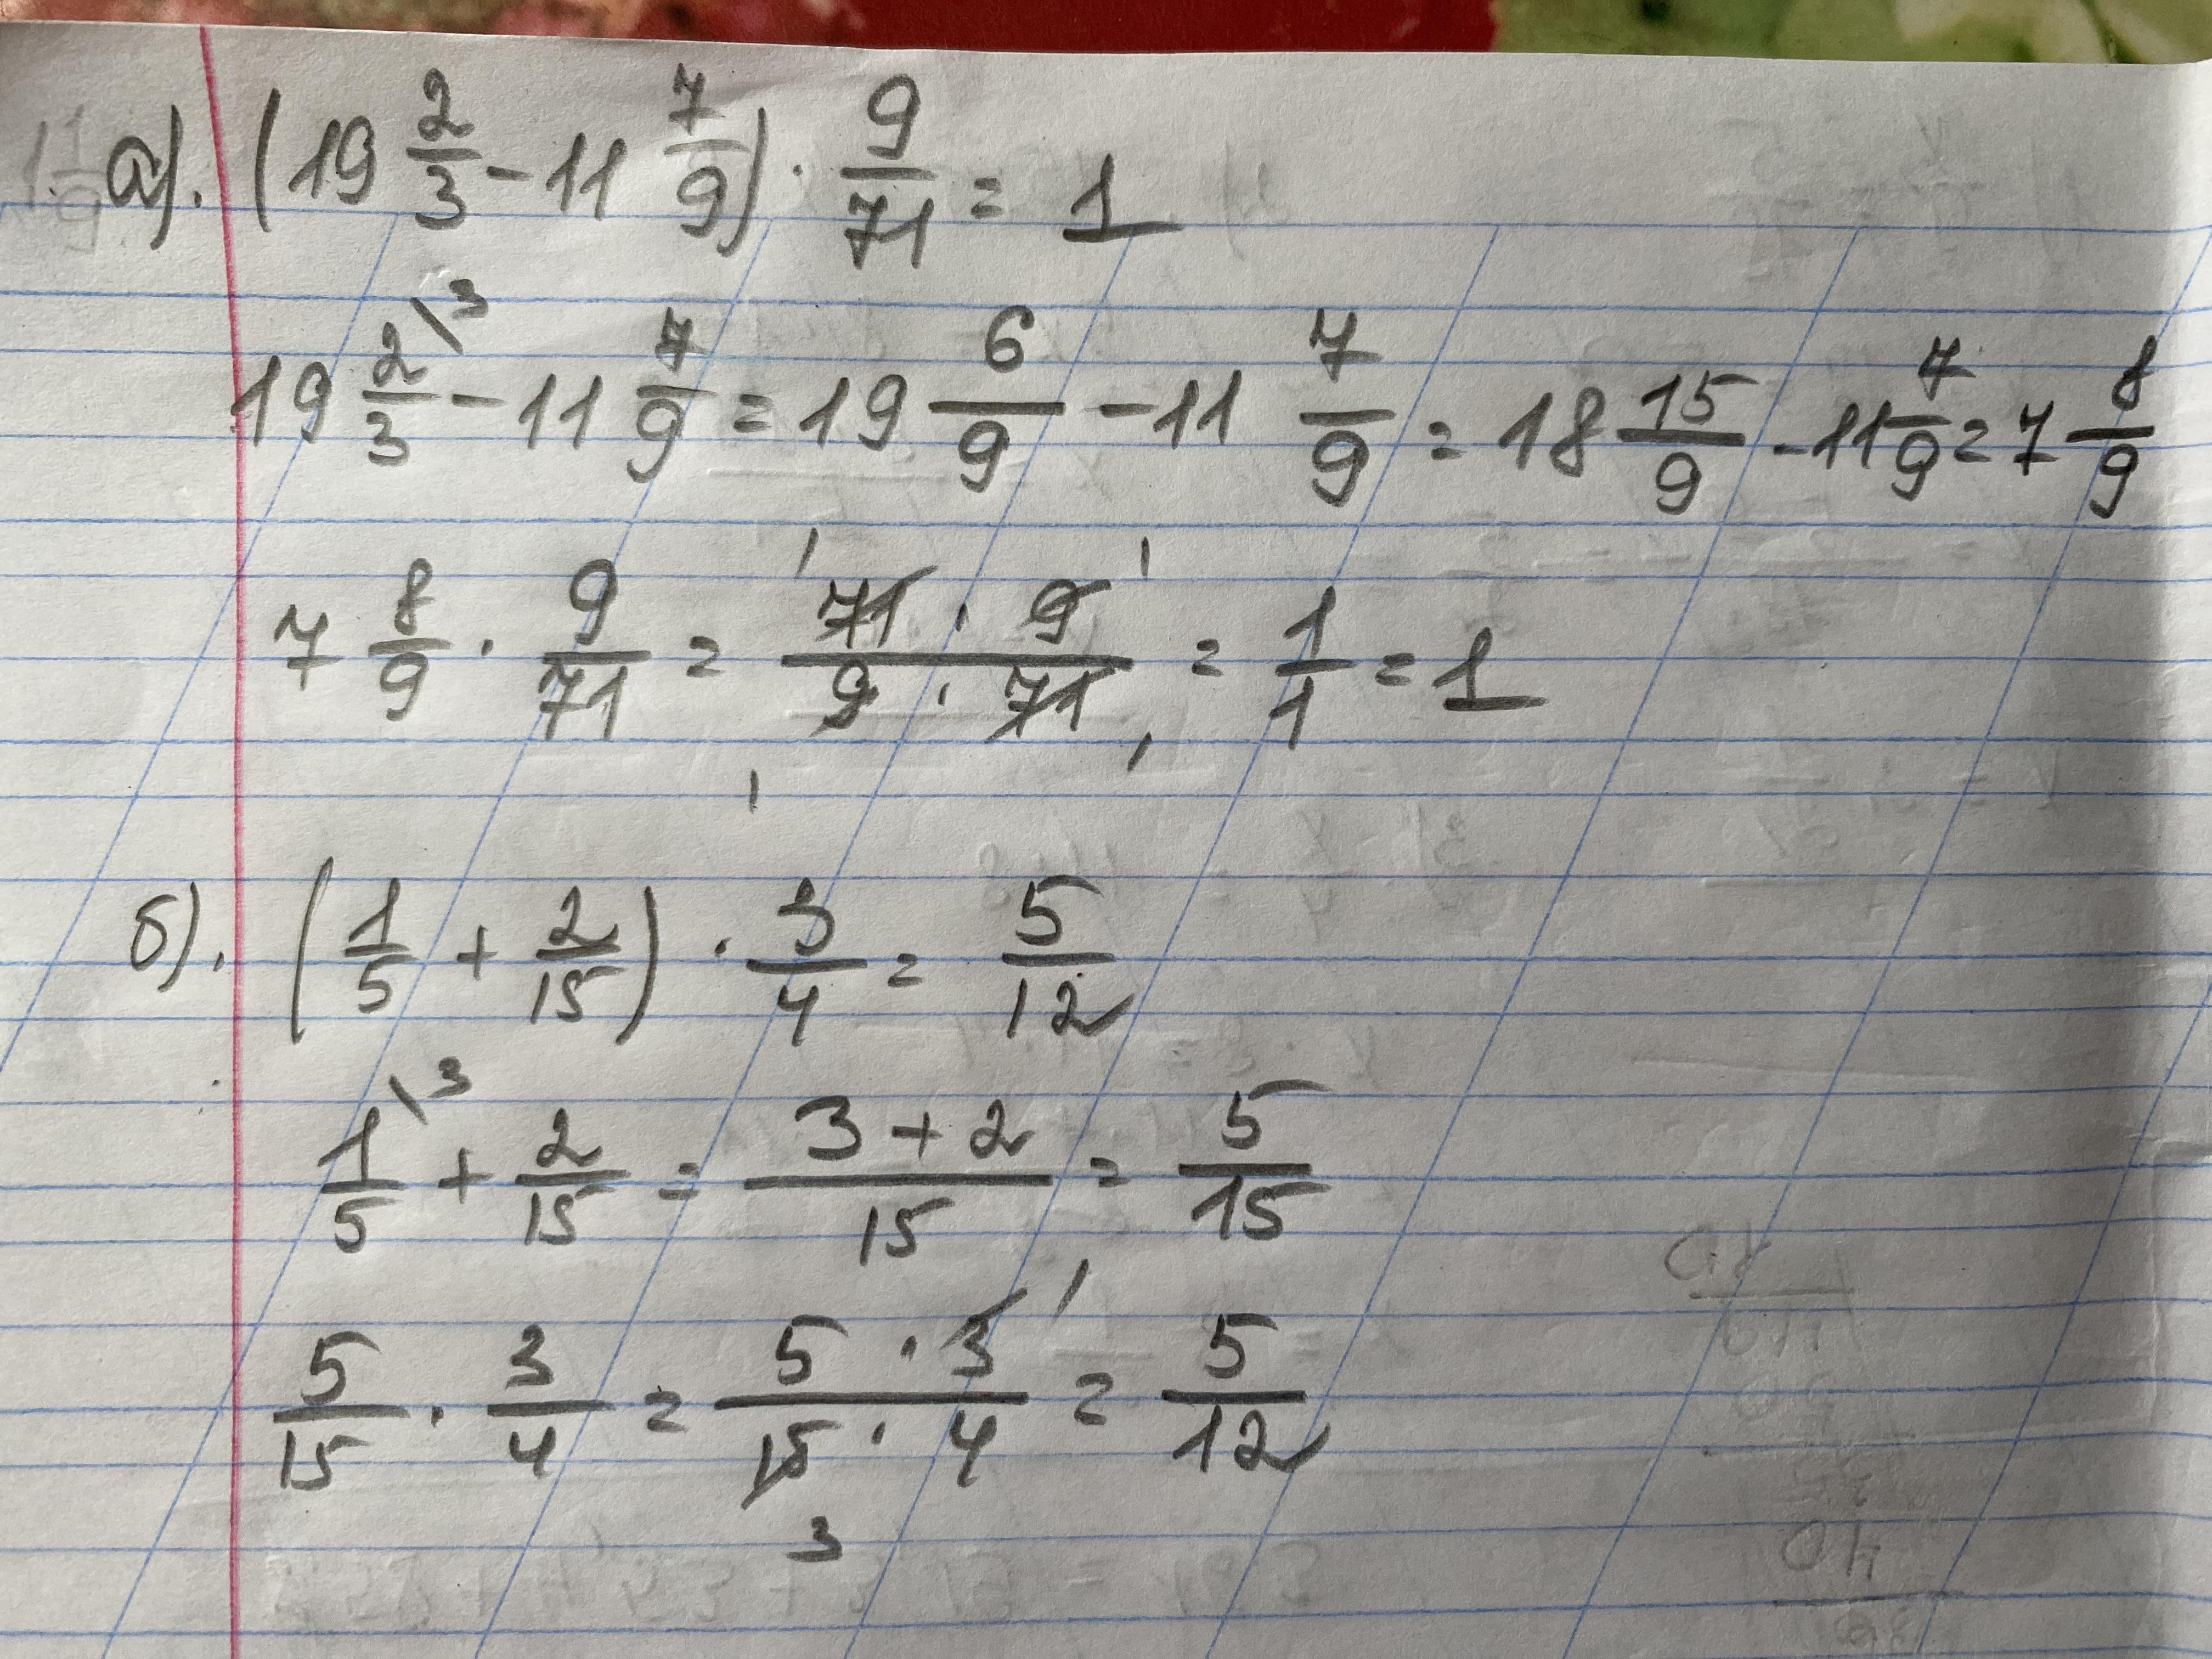 а). (19 2/3 - 11 7/9) · 9/71 = 1
19 2\3/3 - 11 7/9 = 19 6/9 - 11 7/9 = 18 15/9 - 11 7/9 = 7 8/9
7 8/9 · 9/71 = 71 · 9/9 · 71 = 1/1 = 1
б). (1/5 + 2/15) · 3/4 = 5/12
1\3/5 + 2/15 = 3 + 2/15 = 5/15
5/15 · 3/4 = 5 · 3/15 · 4 = 5/12
3